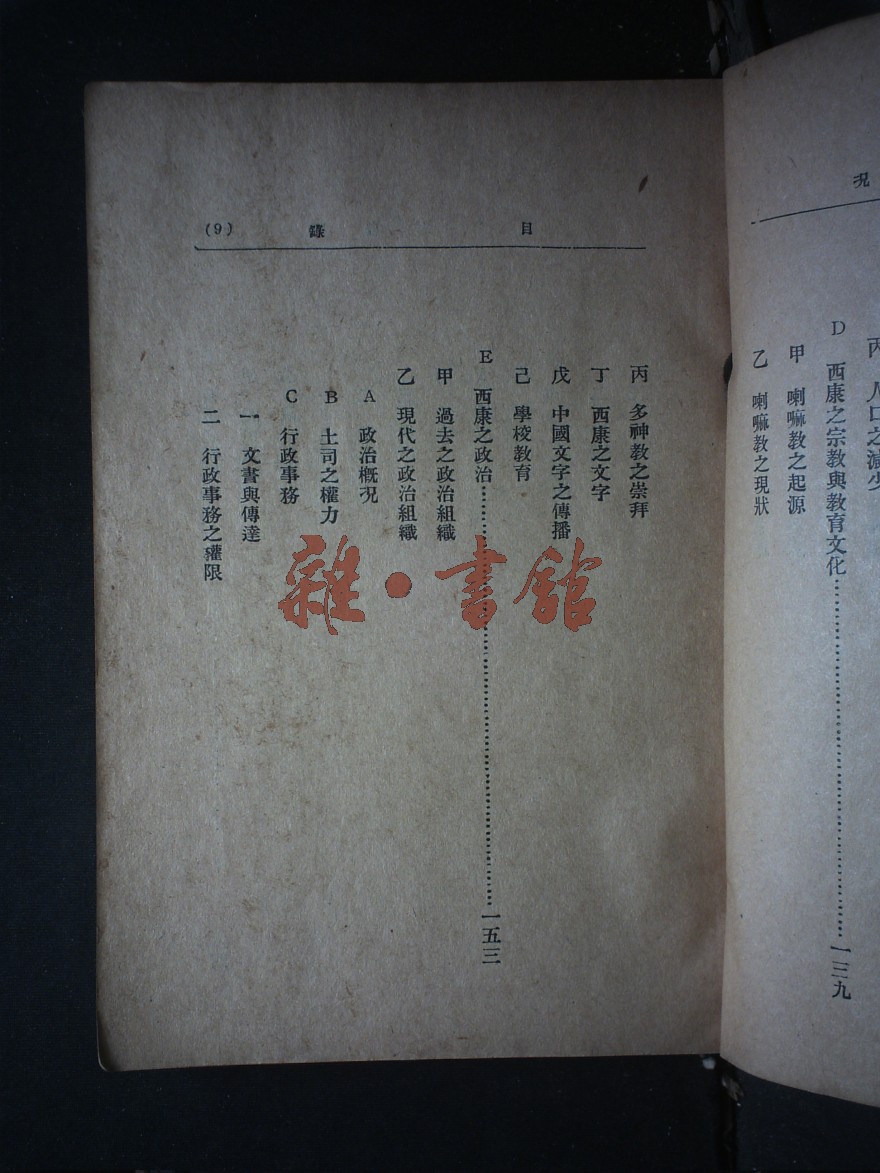 況
丙 人口之減少
D 西康之宗教與教育文化……一三九
甲 喇嘛教之起源
乙 喇嘛教之現狀
目 錄 (9)
丙 多神教之崇拜
丁 西康之文字
戊 中國文字之傳播
己 學校教育
E 西康之政治……一五三
甲 過去之政治組織
乙 現代之政治組織
A 政治概況
B 土司之權力
C 行政事務
一 文書與傳達
二 行政事務之權限
雜·書館